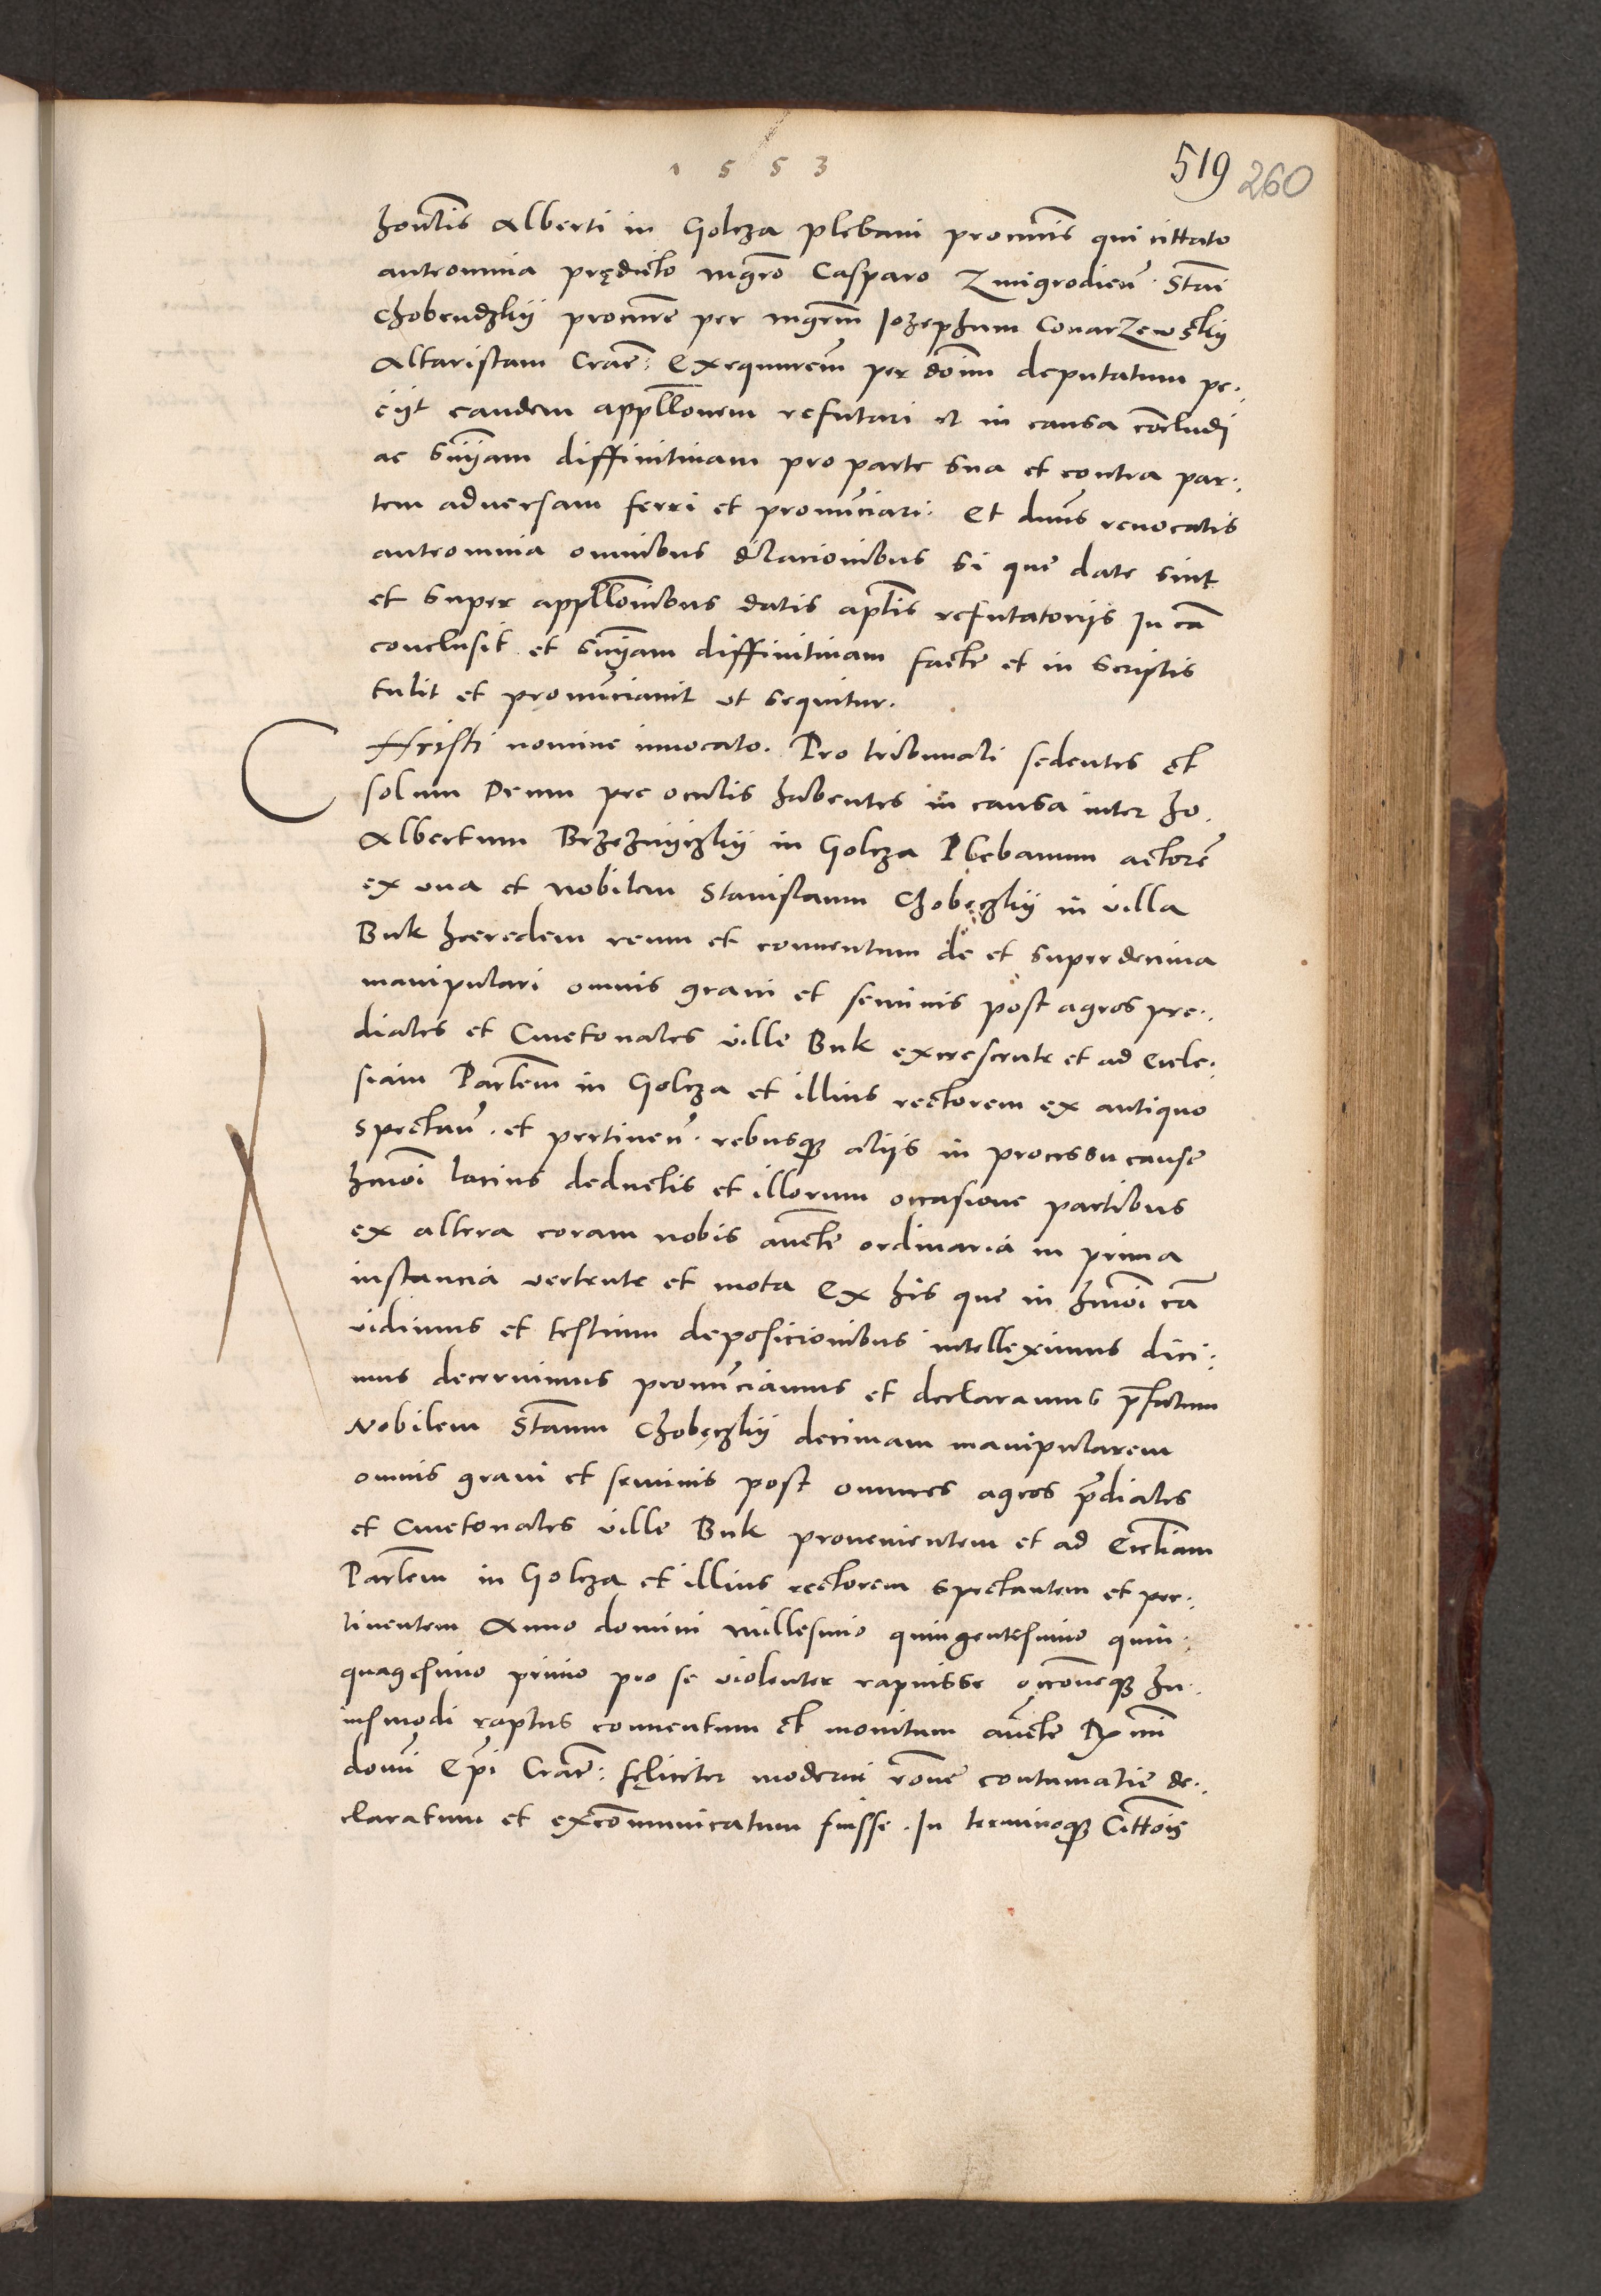 1553
519 260
hon̄lis Alberti in Golcza plebani procuris qui cittato
anteomnia prędicto mgr̄o Casparo Zmigrodien̄. Stāi
Chobendzkij procur̄e per mgr̄m Jozephum Conarzewskij
Altaristam Crac̄: Exequurem̄ per dōm deputatum pe:
cijt eandem appllōnem refutari et in causa cōcludi
ac sn̄iam diffinitivam pro parte sua et contra par:
tem adversam ferri et pronu̅ciari: Et dn̄us revocatis
anteomnia omnibus dilacionibus si que date sint
et super appllōnibus datis aptl̄is refutatorijs In cā
conclusit et sn̄iam diffinitivam factę et in scriptis
tulit et pronu̅ciavit ut sequitur.
CHristi nomine invocato. Pro tribunali sedentes et
solum Deum pre oculis habentes in causa inter ho.
Albertum Brzeznyczkij in Golcza Plebanum actorē
ex una et nobilem Stanislaum Chobęczkij in villa
Buk hæredem reum et conventum de et super decima
manipulari omnis grani et seminis post agros pre:
diales et Cmetonales ville Buk excrescente et ad Eccle:
siam Parlem̄ in Golcza et illius rectorem ex antiquo
spectan̄. et pertinen̄. rebusq₃ aliis in processu cause
hmōi lacius deductis et illorum occasione partibus
ex altera coram nobis auc̄te ordinaria in prima
instancia vertente et mota Ex his que in hmōi cā
vidimus et testium deposicionibus intelleximus dici:
mus decernimus pronu̅ciamus et declaramus p̄fatum
Nobilem Stāum Chobęczkij decimam manipularem
omnis grani et seminis post omnes agros p̄diales
et Cmetonales ville Buk provenientem et ad Eccl̄iam
Parlem̄ in Golcza et illius rectorem spectantem et per:
tinentem Anno domini millesimo quingentesimo quin:
quagesimo primo pro se violenter rapuisse occōneq₃ hu:
iusmodi raptus conventum et monitum auc̄te Rx̄mi
domi Ep̄i Crac̄: feliciter moderni rōne contumatie de:
claratum et excōmunicatum fuisse. In terminoq₃ Cittōis